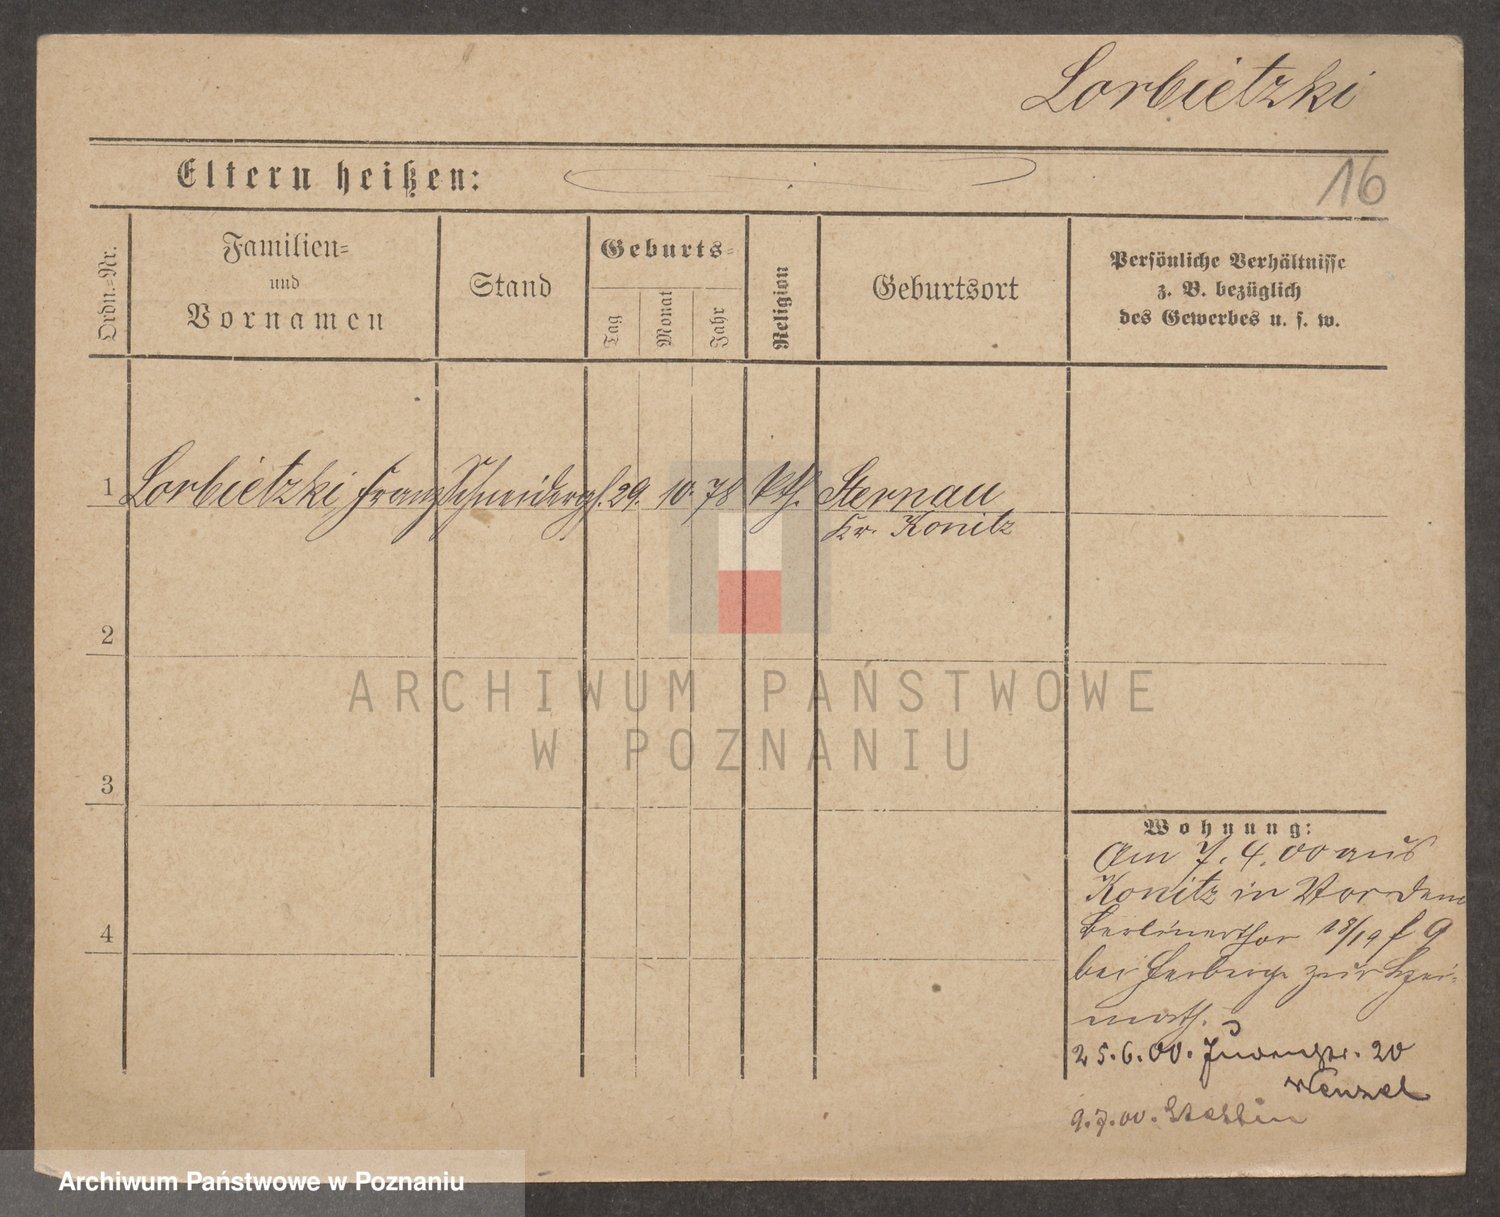 Lorbietzki
Eltern heißen:
16
Ordn.-Nr.
Familien-
und
Vornamen
Stand
Geburts-
Tag
Monat
Jahr
Religion
Geburtsort
Persönliche Verhältnisse
z. B. bezüglich
des Gewerbes u. s. w.
1 Lorbietzki Franz Schneiderges. 29. 10. 78 kth. Sternau
Kr. Konitz
2
3
4
Wohnung:
Am 7. 4. 00 aus
Konitz in Vor dem
Berlinerthor 18/19 f 9
bei Herberge zur Hei-
math.
25. 6. 00. 20
Wenzel
9. 7. 00. Stettin
ARCHIWUM PAŃSTWOWE
W POZNANIU
Archiwum Państwowe w Poznaniu